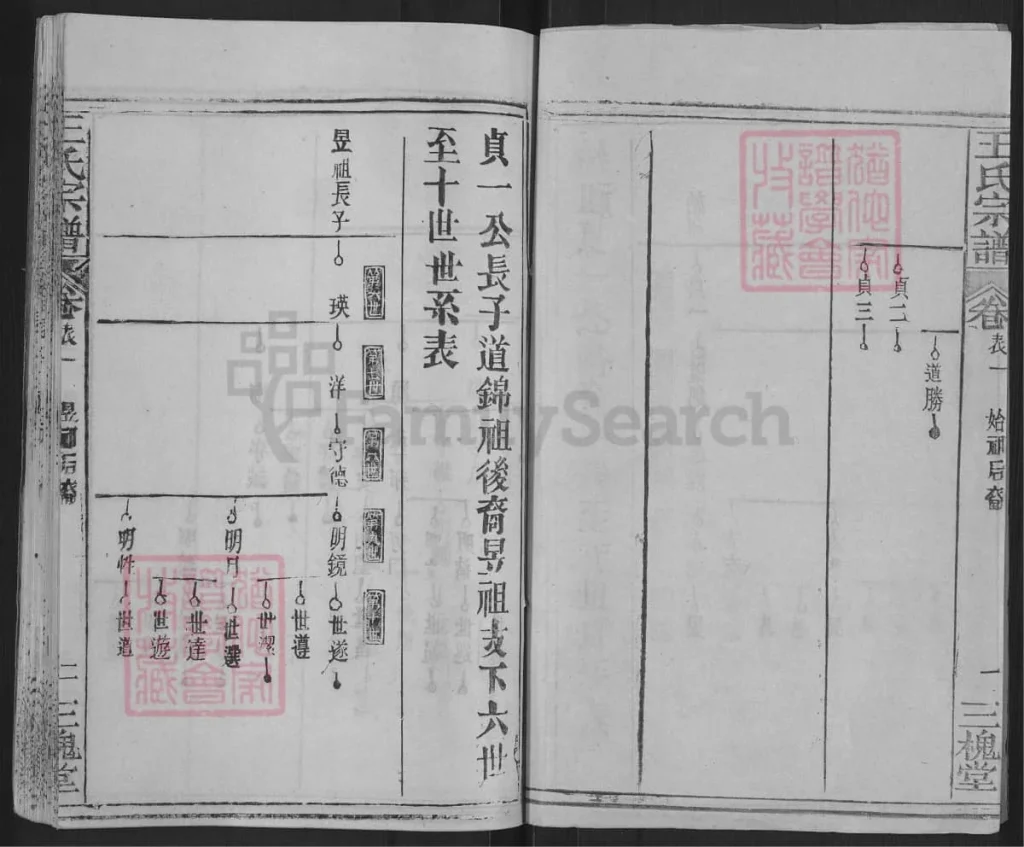 王氏宗譜
卷
表一
始祖后裔
一
三槐堂
道勝
貞二
貞三
貞一公長子道錦祖後裔昱祖支下六世
至十世世系表
第六世
第七世
第八世
第九世
第十世
昱祖長子
瑛
洋
守德
明鏡
世遂
世遵
世澤
明月
世選
世達
世遊
明性
世道
王氏宗譜
卷
表一
昱祖后裔
二
三槐堂
譜學會
收藏
FamilySearch